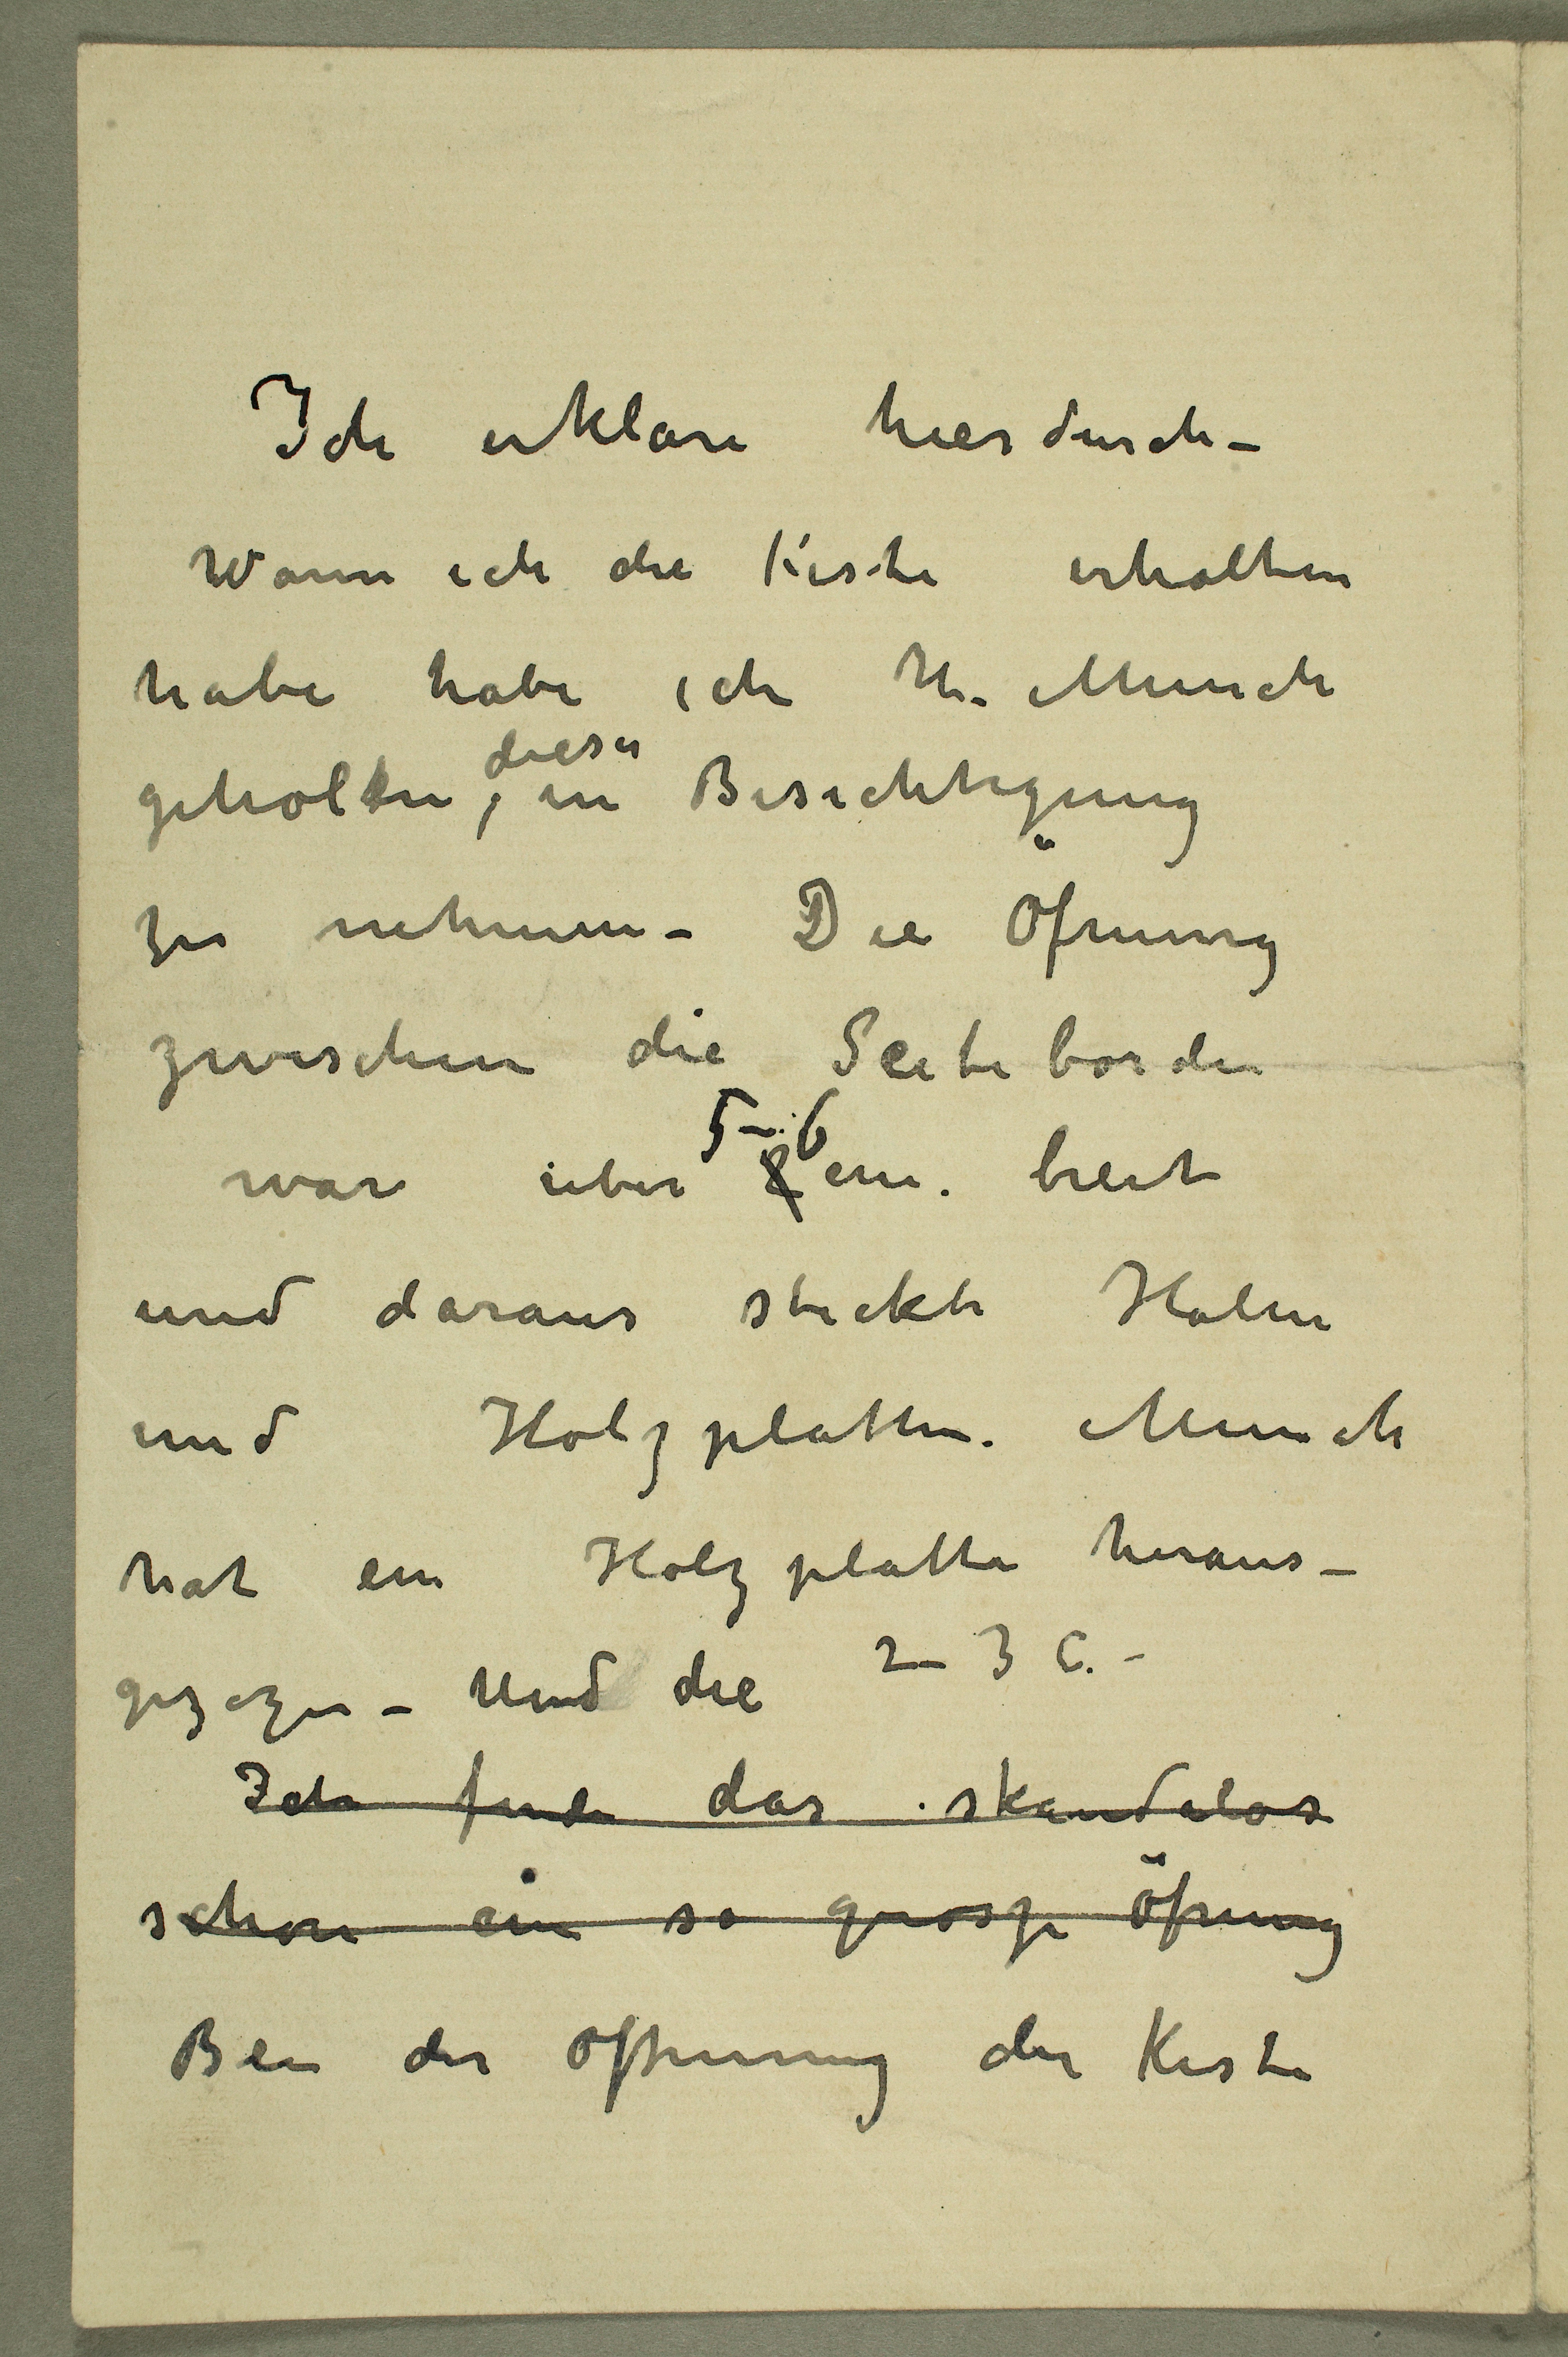 Ich erklare hierdurch –
Wann ich die Kiste erhalten
habe habe ich H. Munch
geholten, dieser in Besichtigung
zu nehmen – Die Öfnung
zwischen die Seiteborden
war über 5–6 cm. breit
und daraus steckte Halm
und Holzplatten. Munch
hat ein Holzplatte heraus–
gezogen – Und die 2–3 C. –
Ich finde das skandalos
schon ein so grosze Öfnung
Bei der Öffnung der Kiste